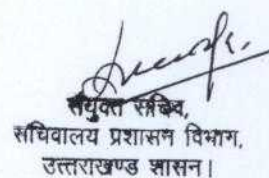 संयुक्त सचिव,
सचिवालय प्रशासन विभाग,
उत्तराखण्ड शासन।